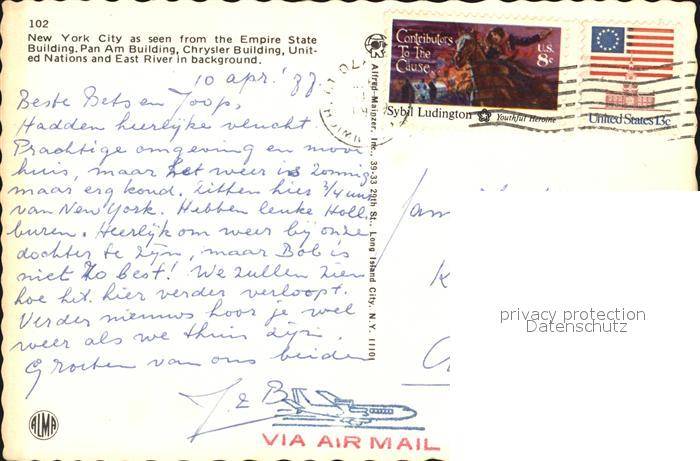 102
New York City as seen from the Empire State
Building. Pan Am Building, Chrysler Building, Unit-
ed Nations and East River in background.
10 apr.
Beste Bets en Joop,
Hadden heerlijke vlucht
Prachtige omgeving en mooi
huis, maar het weer is zonnig
maar erg koud. Zitten hier 3/4 uur
van New York. Hebben leuke Holl.
buren. Heerlijk om weer bij onze
dochter te zijn, maar Bob is
niet zo best! We zullen zien
hoe hit hier verder verloopt.
Verder nieuws hoor je wel
weer als we thuis zijn.
Groeten van ons beiden
J & B
ALMA
Alfred Mainzer, Inc., 39-33 29th St., Long Island City, N.Y. 11101
Contributors
To The
Cause
U.S.
8c
Sybil Ludington
Youthful Heroine
United States 13c
privacy protection
Datenschutz
VIA AIR MAIL